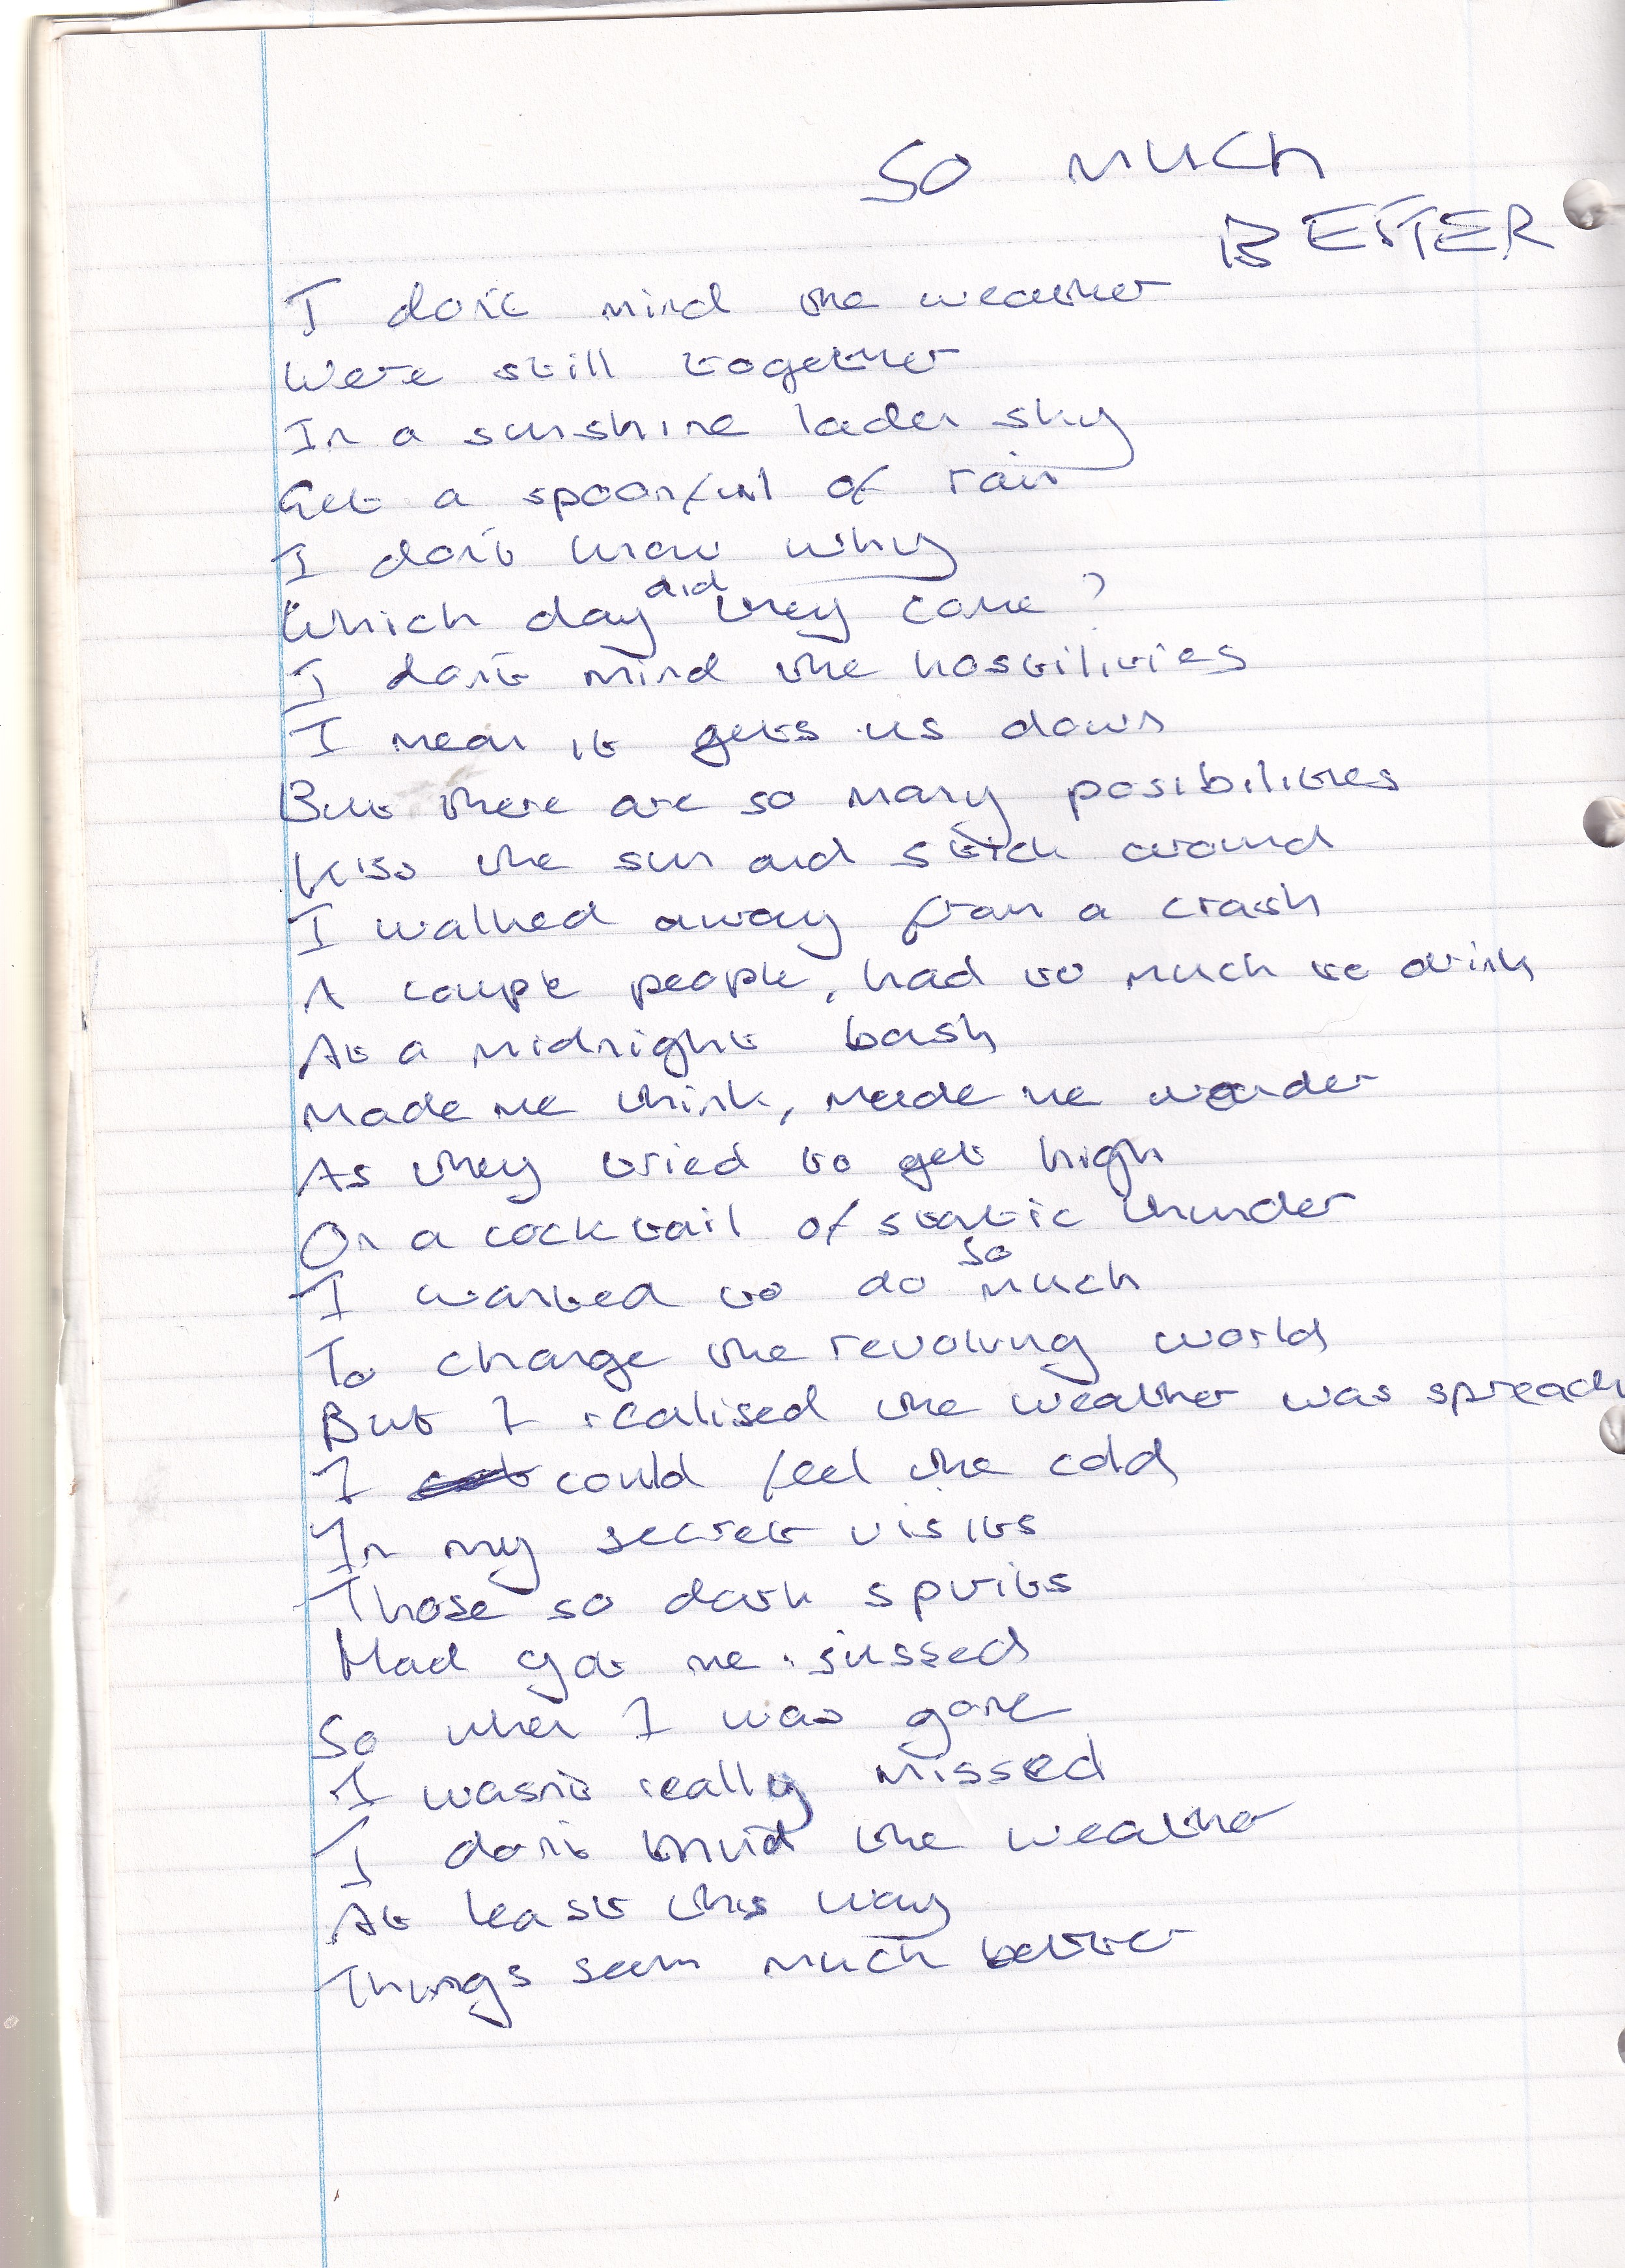 SO MUCH
BETTER
I don't mind the weather
Were still together
In a sunshine laden sky
Get a spoonful of rain
I don't know why
Which day did they come?
I don't mind the hostilities
I mean it gets us down
But there are so many posibilities
Kiss the sun and stick around
I walked away from a crash
A couple people, had to much to drink
At a midnight bash
Made me think, made me wonder
As they tried to get high
On a cocktail of static thunder
I wanted to do so much
To change the revolving world
But I realised the weather was spread
I could feel the cold
In my secret visits
Those so dark spirits
Had got me sussed
So when I was gone
I wasn't really missed
I don't mind the weather
At least this way
Things seem much better